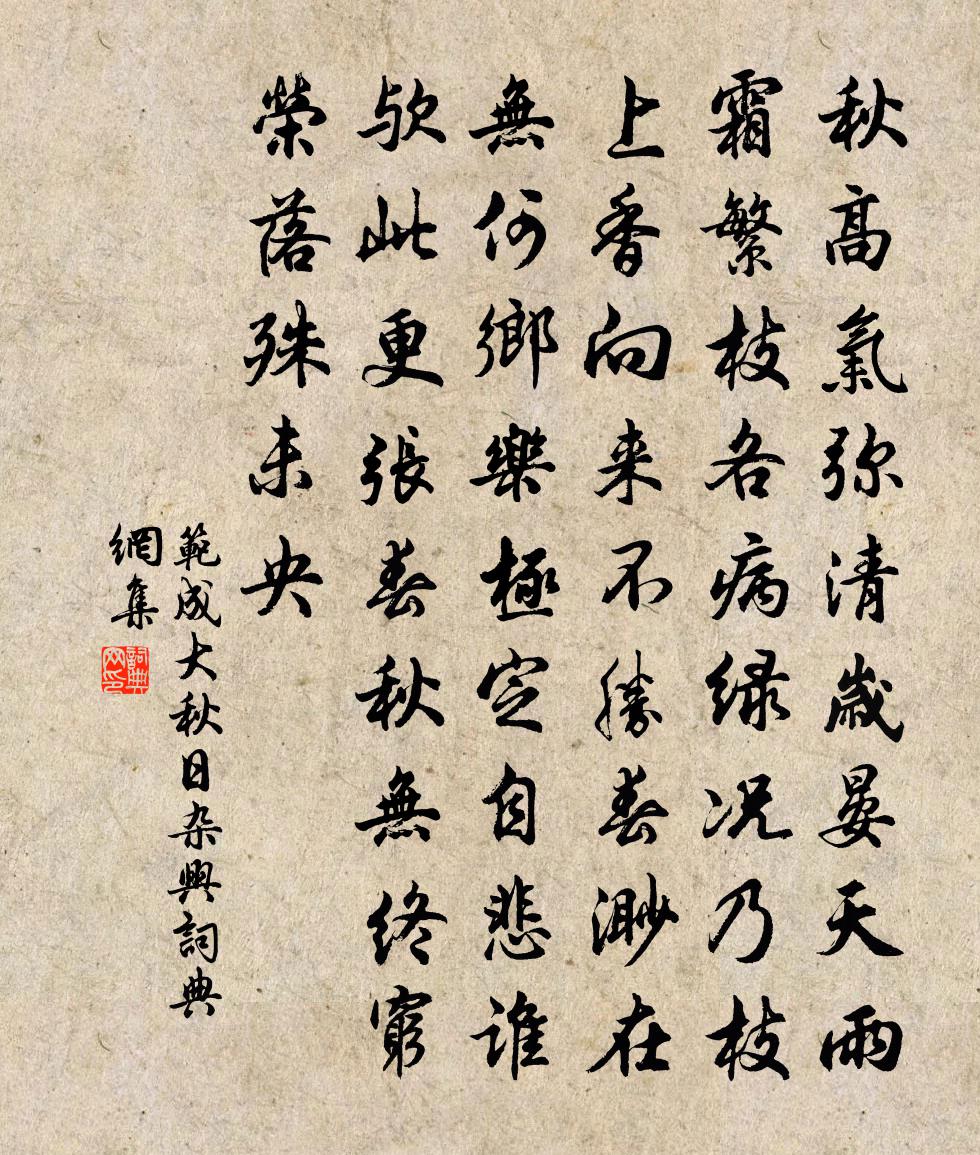 秋高氣弥清歲晏天雨
霜繁枝各病绿况乃枝
上香向来不勝春渺在
無何鄉樂極定自悲誰
欤此更張春秋無终窮
榮落殊未央
範成大秋日杂興詞典
網集
詞典网印